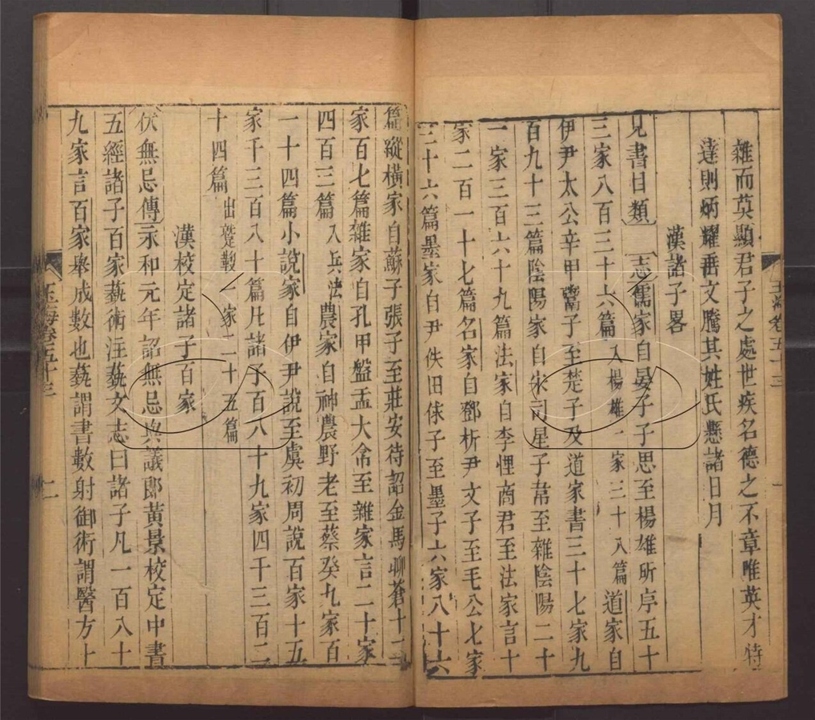 雜而英顯君子之處世疾名德之不章唯英才特
達則炳耀垂文騰其姓氏懸諸日月
漢諸子畧
見書目類 志儒家自晏子子思至楊雄所序五十
三家八百三十六篇入楊雄一家三十八篇道家自
伊尹太公辛甲鬻子至楚子及道家書三十七家九
百九十三篇陰陽家自宋司星子韋至雜陰陽二十
一家三百六十九篇法家自李悝商君至法家言十
家二百一十七篇名家自鄧析尹文子至毛公七家
三十六篇墨家自尹佚田俅子至墨子六家八十六
篇縱橫家自蘇子張子至莊安待詔金馬聊蒼十二
家百七篇雜家自孔甲盤盂大禽至雜家言二十家
四百三篇入兵法農家自神農野老至蔡癸九家百
一十四篇小說家自伊尹說至虞初周說百家十五
家千三百八十篇凡諸子百八十九家四千三百二
十四篇出蹵鞠一家二十五篇
漢校定諸子百家
伏無忌傳永和元年詔無忌與議郎黃景校定中書
五經諸子百家蓺術注蓺文志曰諸子凡一百八十
九家言百家舉成數也蓺謂書數射御術謂醫方卜
玉海卷五十三
一
玉海卷五十三
二